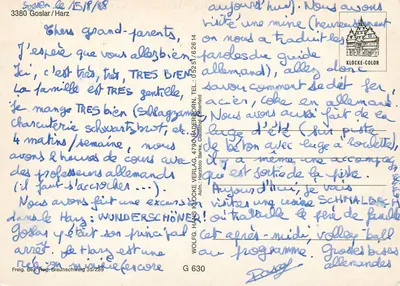 Seesen le 15/8/88
3380 Goslar/Harz
Chers grand-parents,
J'espère que vous allez bien
Ici, c'est très, très, TRES BIEN
La famille est TRES gentille,
je mange TRES bien (Schlagsahne,
charcuterie schwartzbrot, et
4 matins/semaine, nous
avons 2 heures de cours avec
des professeurs allemands
(il faut s'accrocher...).
Nous avons fait une excursion
dans le Harz: WUNDERSCHÖNE!
Goslar y était son principal
arrêt. Le Harz est une
région minière (encore
aujourd'hui). Nous avons
visité une mine (heureusement
on nous a traduit les
paroles du guide
allemand), allez donc
savoir comment se dit fer,
acier, coke en allemand.
Nous avons aussi fait de la
luge d'été (sur piste
de béton avec luge à roulette),
il y a même une accompagn.
qui est sortie de la piste
Aujourd'hui, je vais
visiter une usine SCHMALBACH
où travaille le père de famille
cet après-midi, volley-ball
au programme. Grosses bises
allemandes
KLOCKE-COLOR
WOLFG. HANS KLOCKE VERLAG, 4790 PADERBORN, TEL. 05251/62614
Freig. Bez. Reg. Braunschweig
G 630